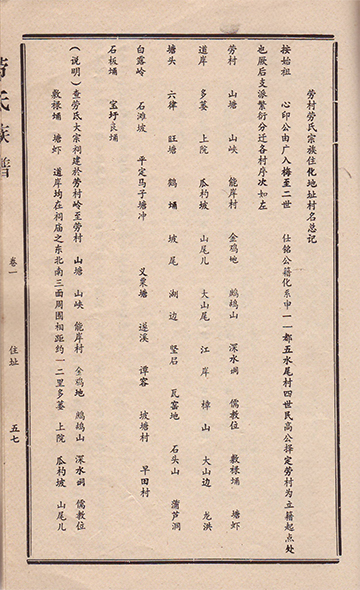 劳村劳氏宗族住化地址村名总记
按始祖 心印公由广入梅至二世 仕铭公籍化系中一一都五水尾村四世民高公择定劳村为立籍起点处
也厥后支派繁衍分迁各村序次如左
劳村 山塘 山峡 能岸村 金鸡地 鹧鸪山 深水涧 儒教位 敦禄埇 塘虾
道岸 多蒌 上院 瓜杓坡 山尾儿 大山尾 江岸 樟山 大山边 龙洪
塘头 六律 旺塘 鹤埇 坡尾 湖边 竖启 瓦窑地 石头山 蒲芦洞
白露岭 石滩坡 平定马子塘冲 义栗塘 遂溪 谭容 坡塘村 旱田村
石板埇 宝圩良埇
(说明)查劳氏大宗祠建於劳村岭至劳村 山塘 山峡 能岸村 金鸡地 鹧鸪山 深水涧 儒教位
敦禄埇 塘虾 道岸均在祠庙之东北南三面周围相距约一二里多蒌 上院 瓜杓坡 山尾儿
劳氏族谱
卷一
住址
五七